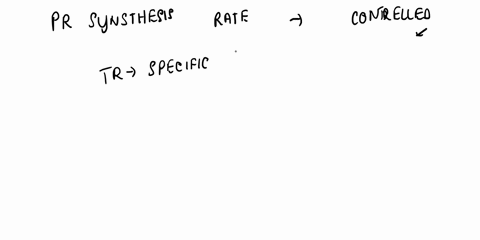 PR SYNSTHESIS RATE → CONTRELLED
TR → SPECIFIC